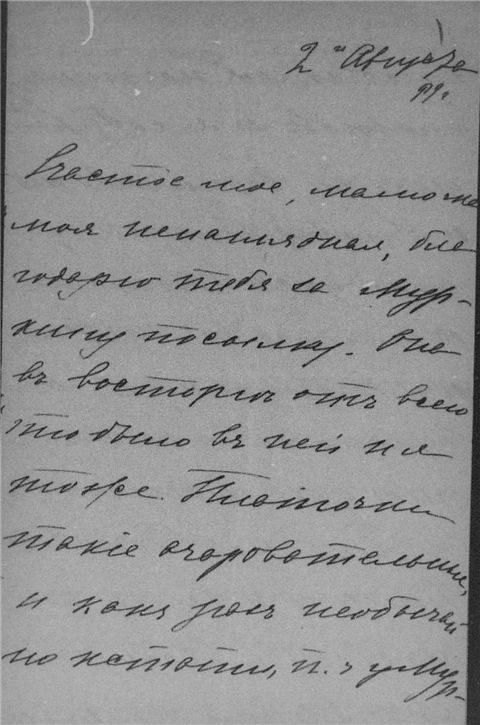 2го Августа
99г.
Счастье мое, мамочка
моя ненаглядная, бла
годарю тебя за Мур-
кину посылку. Она
въ восторгѣ отъ всего
что было въ ней и я
тоже. Платочки
такіе очаровательные,
и какъ разъ необычай
но кстати, п. ч. у Мур-